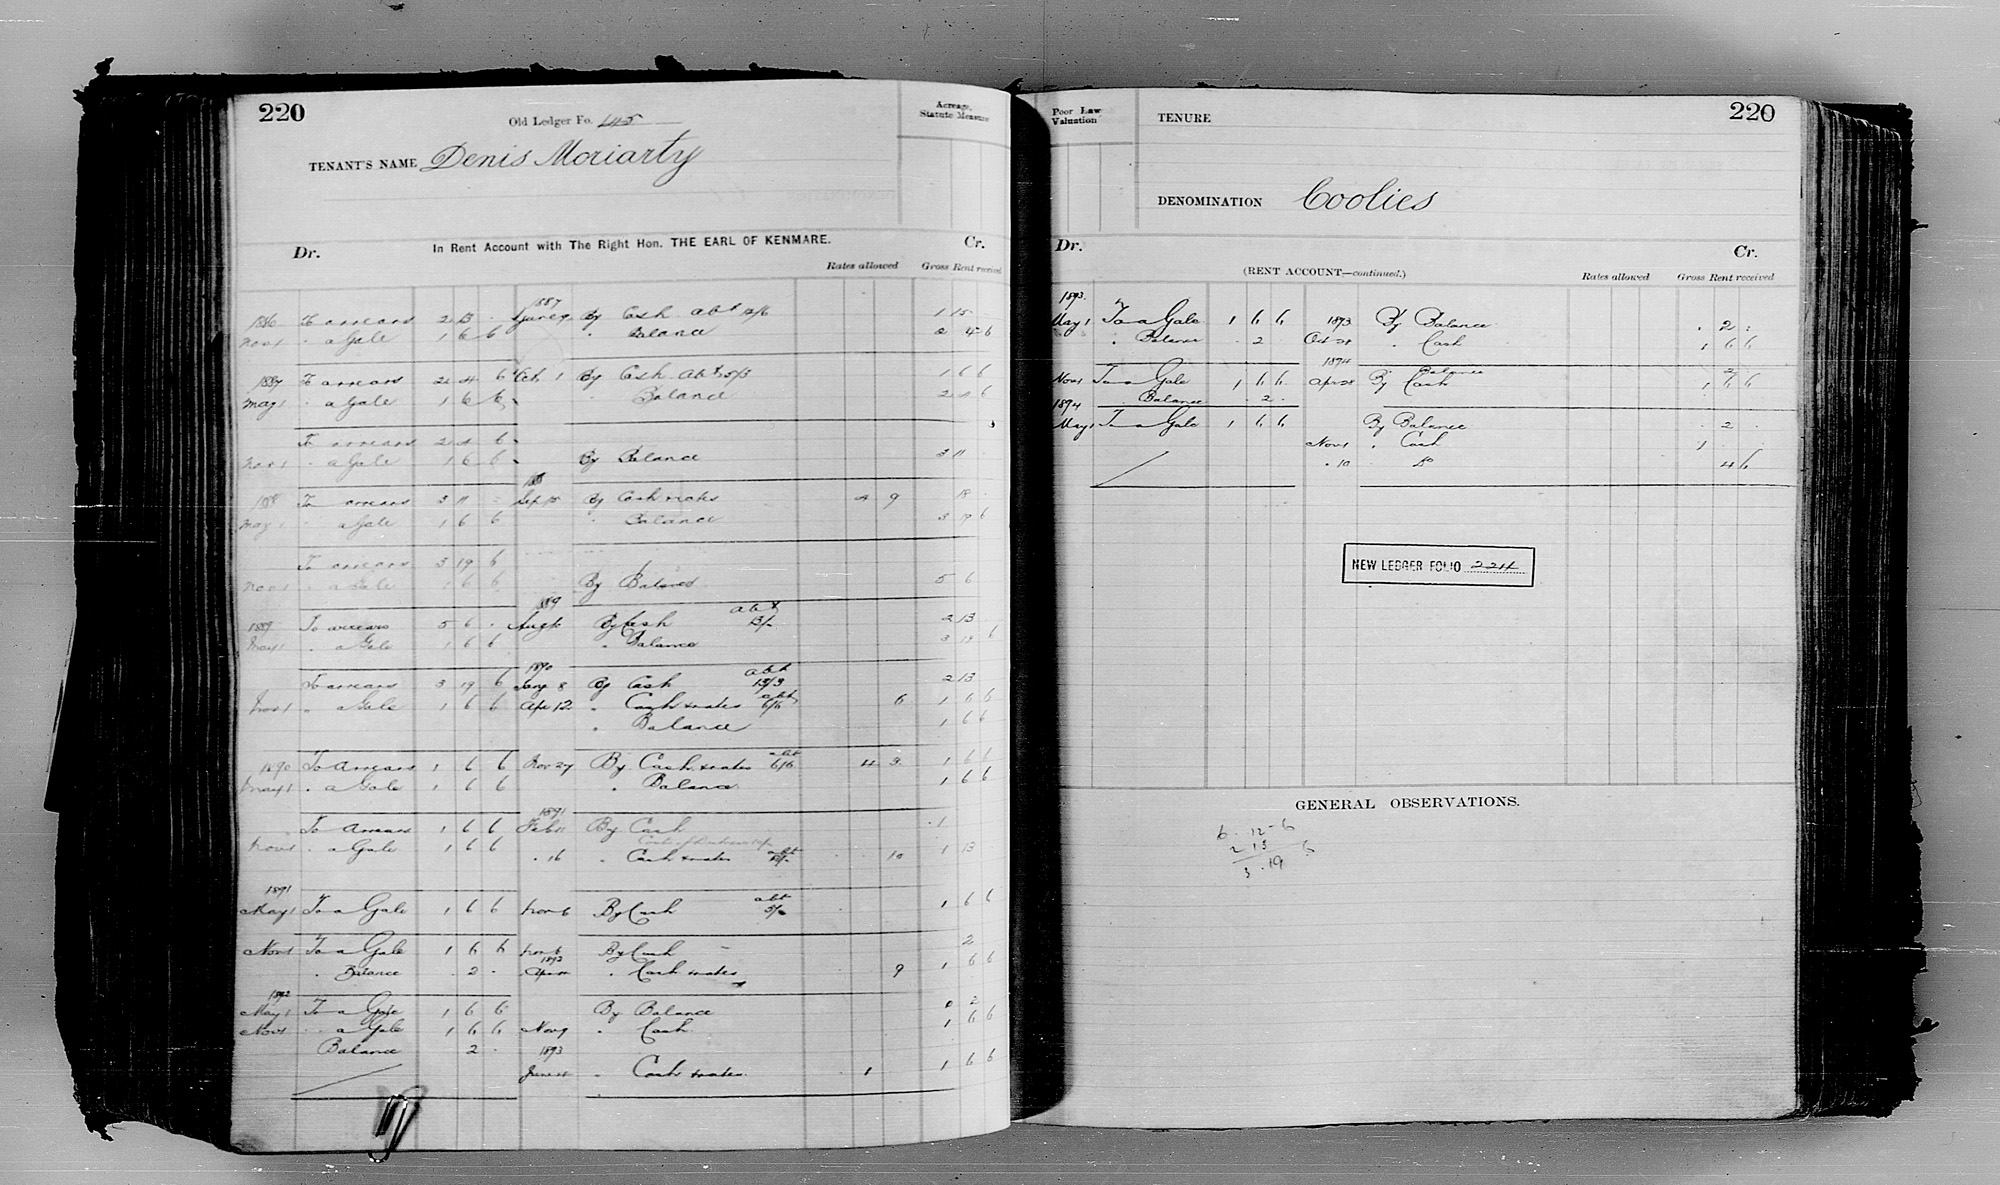 220
Old Ledger Fo. 145
Acreage, Statute Measure
TENANT'S NAME Denis Moriarty
In Rent Account with The Right Hon. THE EARL OF KENMARE.
Dr. Cr.
Rates allowed Gross Rent received
1887
To arrears 2 13 - June 9 By Cash abt 12/6 1 15 -
Nov 1 " a Gale 1 6 6 " Balance 2 4 6
1887 To arrears 2 4 6 Oct 1 By Cash abt 5/3 1 6 6
May 1 " a Gale 1 6 6 " Balance 2 4 6
To arrears 2 4 6
Nov 1 " a Gale 1 6 6 By Balance 3 11
1888 To arrears 3 11 - Sep 15 By Cash & rates 4 9 18 -
May 1 " a Gale 1 6 6 " Balance 3 19 6
To arrears 3 19 6
Nov 1 " a Gale 1 6 6 By Balance 5 6
1889 abt
1889 To arrears 5 6 - Aug By Cash 13/- 2 13
May 1 " a Gale 1 6 6 " Balance 3 19 6
1890 abt
To arrears 3 19 6 Jany 8 By Cash 13/3 2 13
Nov 1 " a Gale 1 6 6 Apr 12 " Cash & rates abt 6/6 6 1 6 6
" Balance 1 6 6
1890 To Arrears 1 6 6 Nov 27 By Cash & rates abt 6/6 4 3 1 6 6
May 1 " a Gale 1 6 6 " Balance 1 6 6
1891
To Arrears 1 6 6 Feb 11 By Cash 1
Nov 1 " a Gale 1 6 6
" 16 " Cash & rates abt 10 1 13
1891
May 1 To a Gale 1 6 6 Nov 6 By Cash abt 1 6 6
Nov 1 To a Gale 1 6 6 Nov 6 By Cash 2
1892
" Balance 2 - Apr " Cash & rates 9 1 6 6
1892
May 1 To a Gale 1 6 6 By Balance 0 2
Nov 1 " a Gale 1 6 6 Nov 9 " Cash 1 6 6
Balance 2 - 1893
June " Cash & rates 1 1 6 6
Poor Law Valuation
TENURE
220
DENOMINATION Coolies
Dr. Cr.
(RENT ACCOUNT—continued.)
Rates allowed Gross Rent received
1893
May 1 To a Gale 1 6 6 1893 By Balance . 2 .
" Balance . 2 . Oct 28 " Cash 1 6 6
1894
Balance 2
Nov 1 To a Gale 1 6 6 Apr 28 By Cash 1 6 6
1894 Balance . 2 .
May 1 To a Gale 1 6 6 By Balance . 2 .
Nov 1 " Cash 1
" 10 Do 4 6
NEW LEDGER FOLIO 224
GENERAL OBSERVATIONS.
6 . 12 - 6
2 13
3 . 19 6